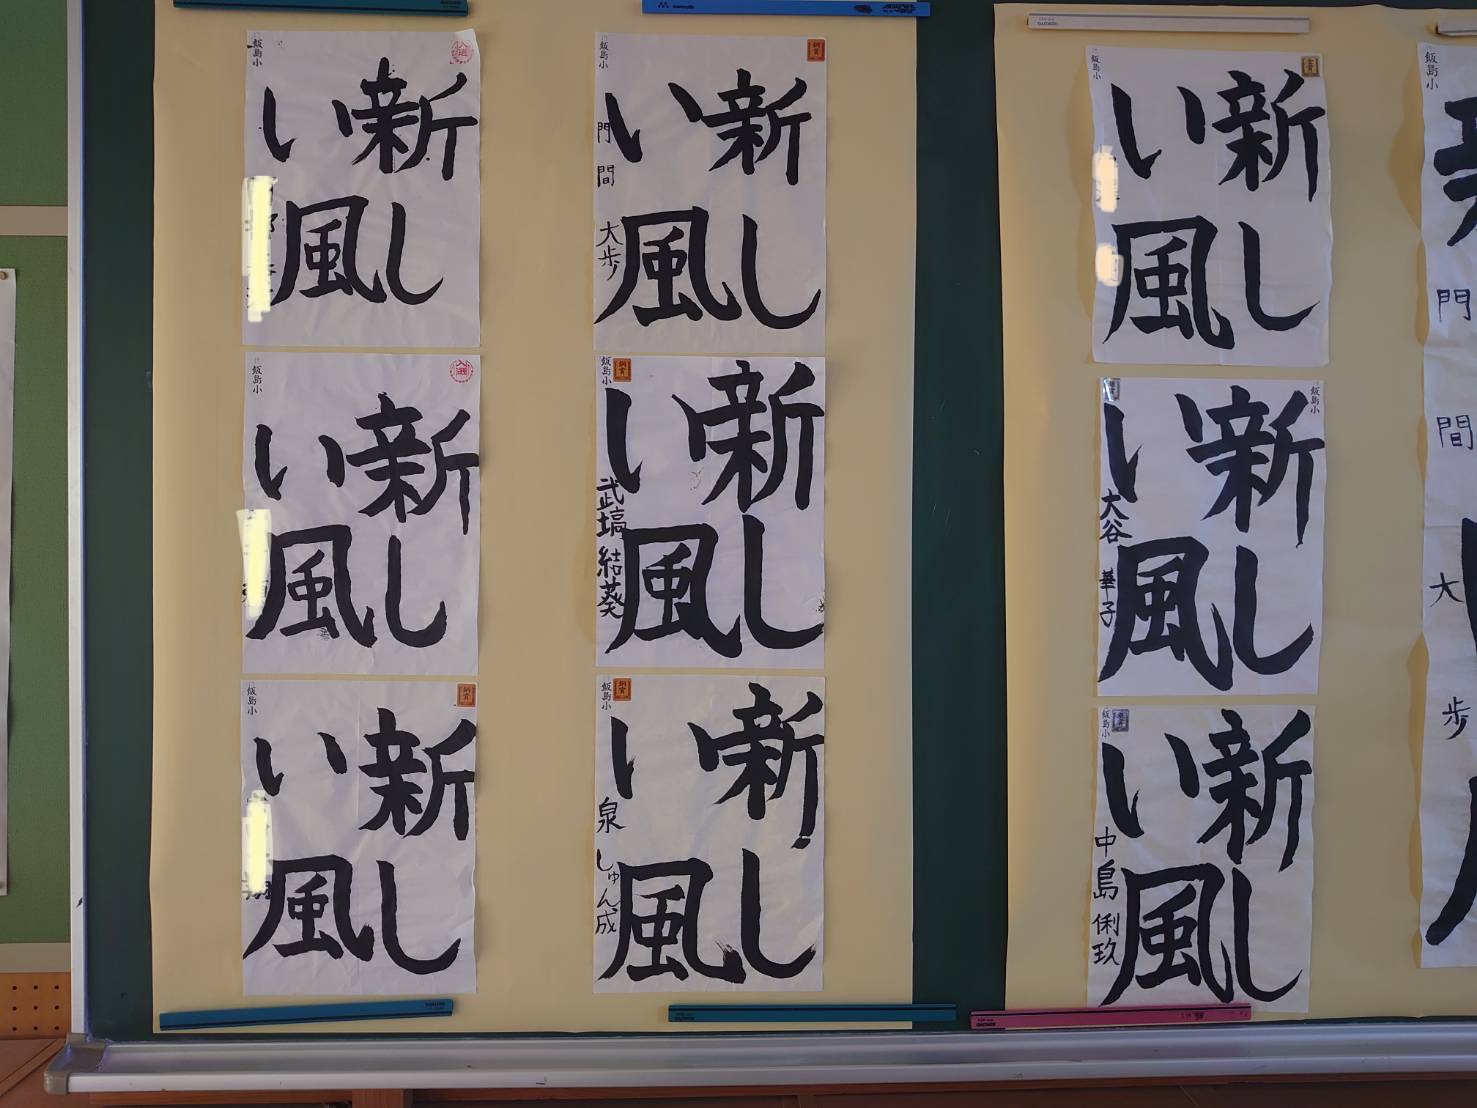 飯島小
入選
新し
い風
飯島小
入選
新し
い風
飯島小
銅賞
新し
い風
翔
飯島小
銅賞
新し
い風
門間 大歩
飯島小
銅賞
新し
い風
武塙 結葵
飯島小
銅賞
新し
い風
泉 しゅん成
飯島小
金賞
新し
い風
飯島小
新し
い風
大谷 華子
飯島小
新し
い風
中島 俐玖
飯島小
門間 大歩